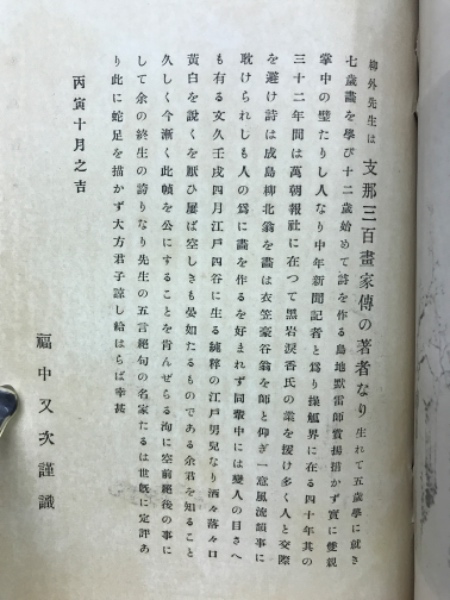 柳外先生は 支那三百畫家傳の著者なり 生れて五歳學に就き
七歳畫を學び十二歳始めて詩を作る島地默雷師賞揚措かず實に雙親
掌中の璧たりし人なり中年新聞記者と爲り操觚界に在る四十年其の
三十二年間は萬朝報社に在つて黑岩淚香氏の業を援け多く人と交際
を避け詩は成島柳北翁を畫は衣笠豪谷翁を師と仰ぎ一意風流韻事に
耽けられしも人の爲に畫を作るを好まれず同輩中には變人の目さへ
も有る文久壬戌四月江戸四谷に生る純粹の江戸男兒なり洒々落々口
黃白を說くを厭ひ屢ば空しきも晏如たるものである余君を知ること
久しく今漸く此幀を公にすることを肯んぜらる洵に空前絕後の事に
して余の終生の誇りなり先生の五言絕句の名家たるは世旣に定評あ
り此に蛇足を描かず大方君子諒し給はらば幸甚
丙寅十月之吉
福中又次謹識